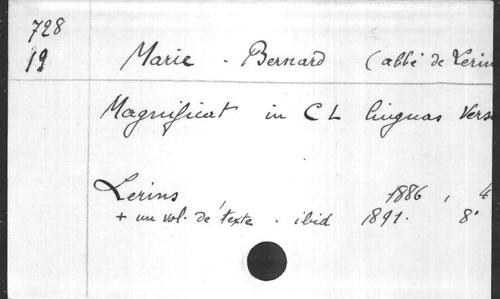 728
19
Marie - Bernard (abbé de Lerin
Magnificat in CL linguas vers
Lerins 1886, 4
+ un vol. de texte. ibid 1891. 8°